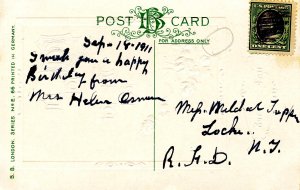 POST CARD
FOR ADDRESS ONLY
Sep - 18 - 1911
I wish you a happy
Birthday
from
Mrs Helen
Miss
Locke
R. F. D. N. Y.
ONE CENT
B. B. LONDON. SERIES NO. E. 66 PRINTED IN GERMANY.